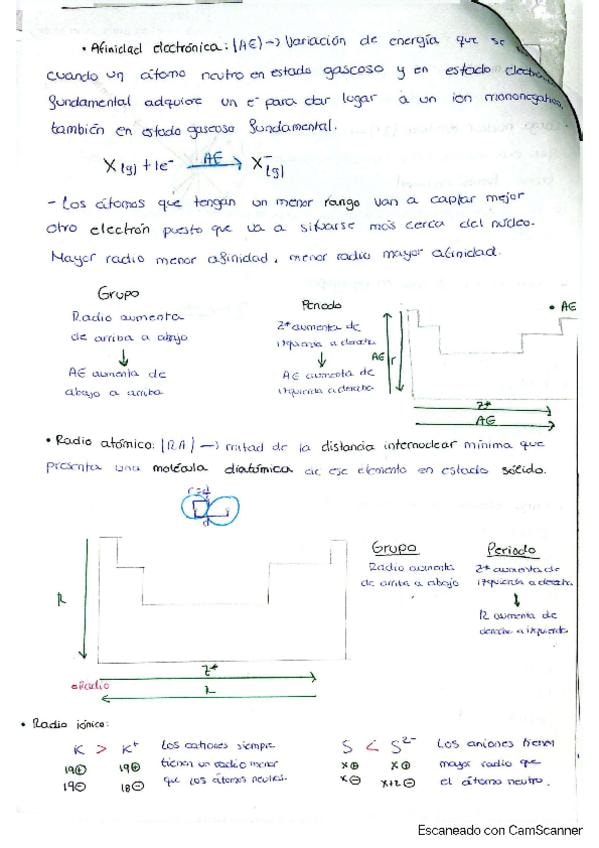 • Afinidad electrónica: (AE) → Variación de energía que se
cuando un átomo neutro en estado gaseoso y en estado
fundamental adquiere un e⁻ para dar lugar a un ion mononegativo,
también en estado gaseoso fundamental.
X(g) + 1e⁻ AE→ X⁻(g)
- Los átomos que tengan un menor rango van a captar mejor
otro electrón puesto que va a situarse más cerca del núcleo.
Mayor radio menor afinidad, menor radio mayor afinidad.
Grupo
Radio aumenta
de arriba a abajo
↓
AE aumenta de
abajo a arriba
Periodo
Z* aumenta de
izquierda a derecha
↓
AE aumenta de
izquierda a derecha
• AE
AE
r
Z*
AE
• Radio atómico: (RA) → mitad de la distancia internuclear mínima que
presenta una molécula diatómica de ese elemento en estado sólido.
d
R
Z*
R
Grupo
Radio aumenta
de arriba a abajo
Periodo
Z* aumenta de
izquierda a derecha
↓
R aumenta de
derecha a izquierda
• Radio iónico:
K > K⁺
19⊕ 19⊕
19⊖ 18⊖
Los cationes siempre
tienen un radio menor
que los átomos neutros.
S < S²⁻
x⊕ x⊕
x⊖ x+2⊖
Los aniones tienen
mayor radio que
el átomo neutro.
Escaneado con CamScanner